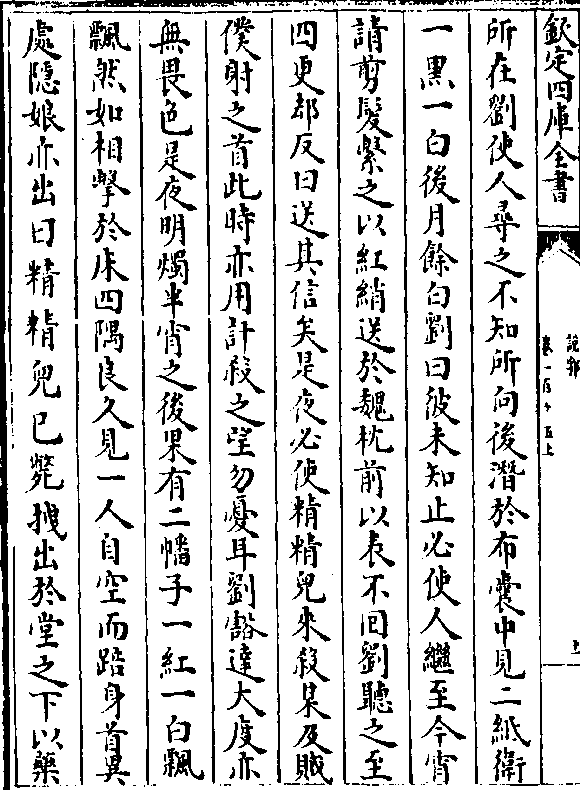 欽定四庫全書
說郛
卷一百十五上
所在劉使人尋之不知所向後潛於布囊中見二紙衛
一黑一白後月餘白劉曰彼未知止必使人繼至今宵
請剪髮繫之以紅綃送於魏枕前以表不回劉聽之至
四更却反曰送其信矣是夜必使精精兒來殺某及賊
僕射之首此時亦用計殺之望勿憂耳劉豁達大度亦
無畏色是夜明燭半宵之後果有二幡子一紅一白飄
飄然如相擊於牀四隅良久見一人自空而踣身首異
處隱娘亦出曰精精兒已斃拽出於堂之下以藥